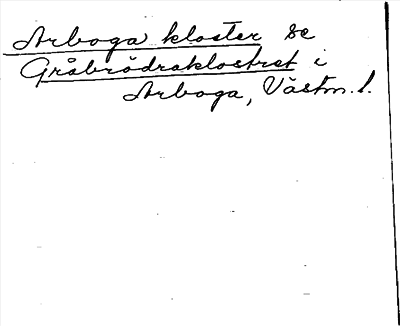 Arboga kloster se
Gråbrödraklostret i
Arboga, Västm. l.